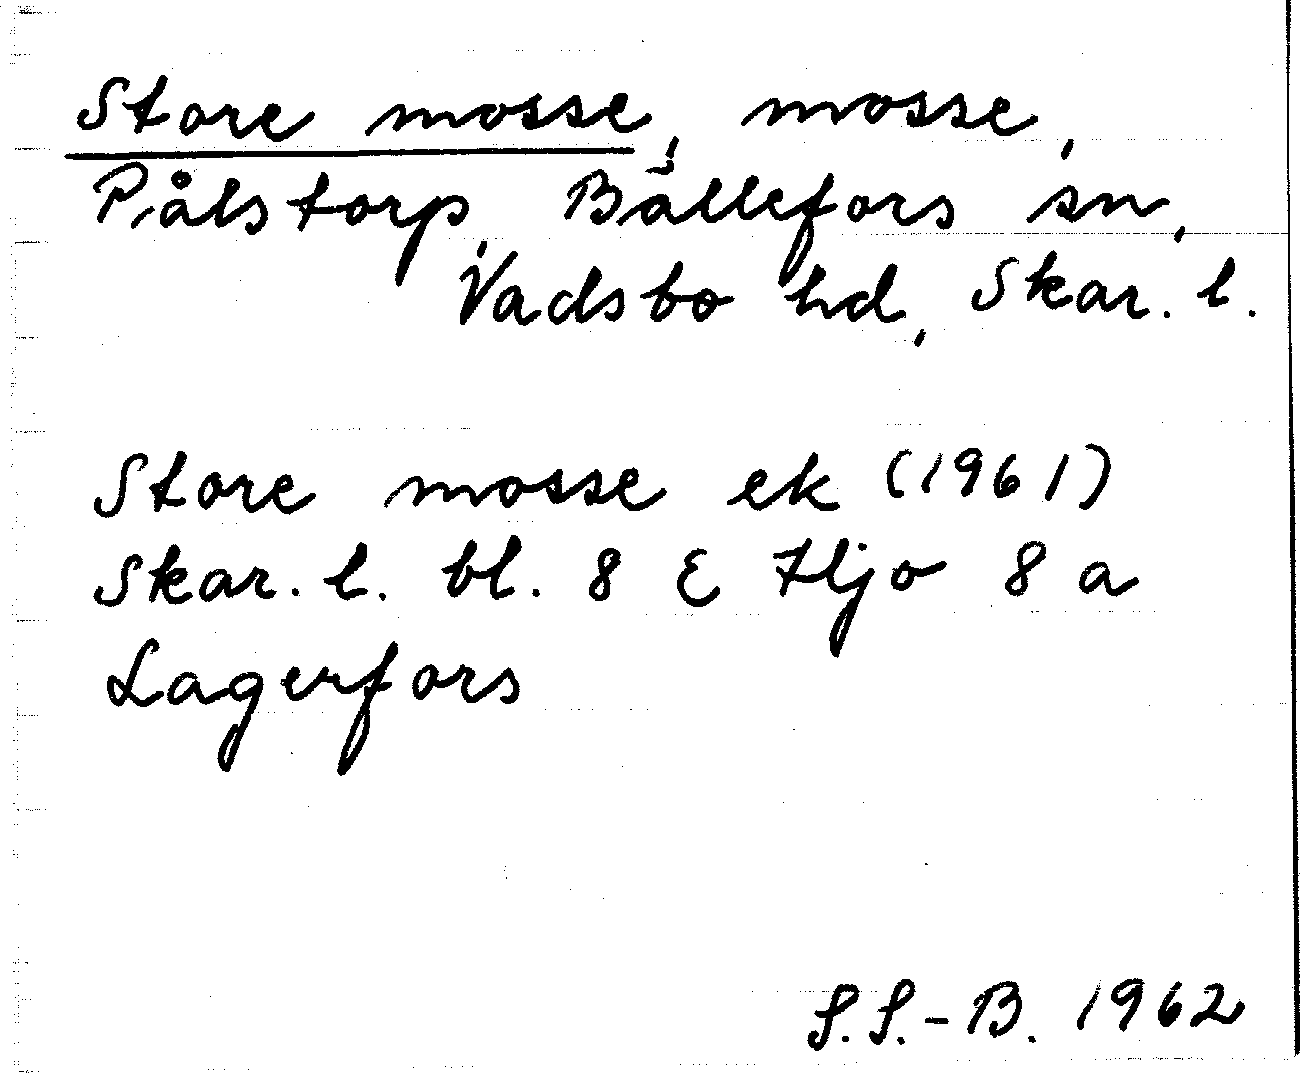 Store mosse, mosse,
Pålstorp, Bällefors sn,
Vadsbo hd, Skar. l.
Store mosse ek (1961)
Skar. l. bl. 8 E Hjo 8 a
Lagerfors
S.S.-B. 1962